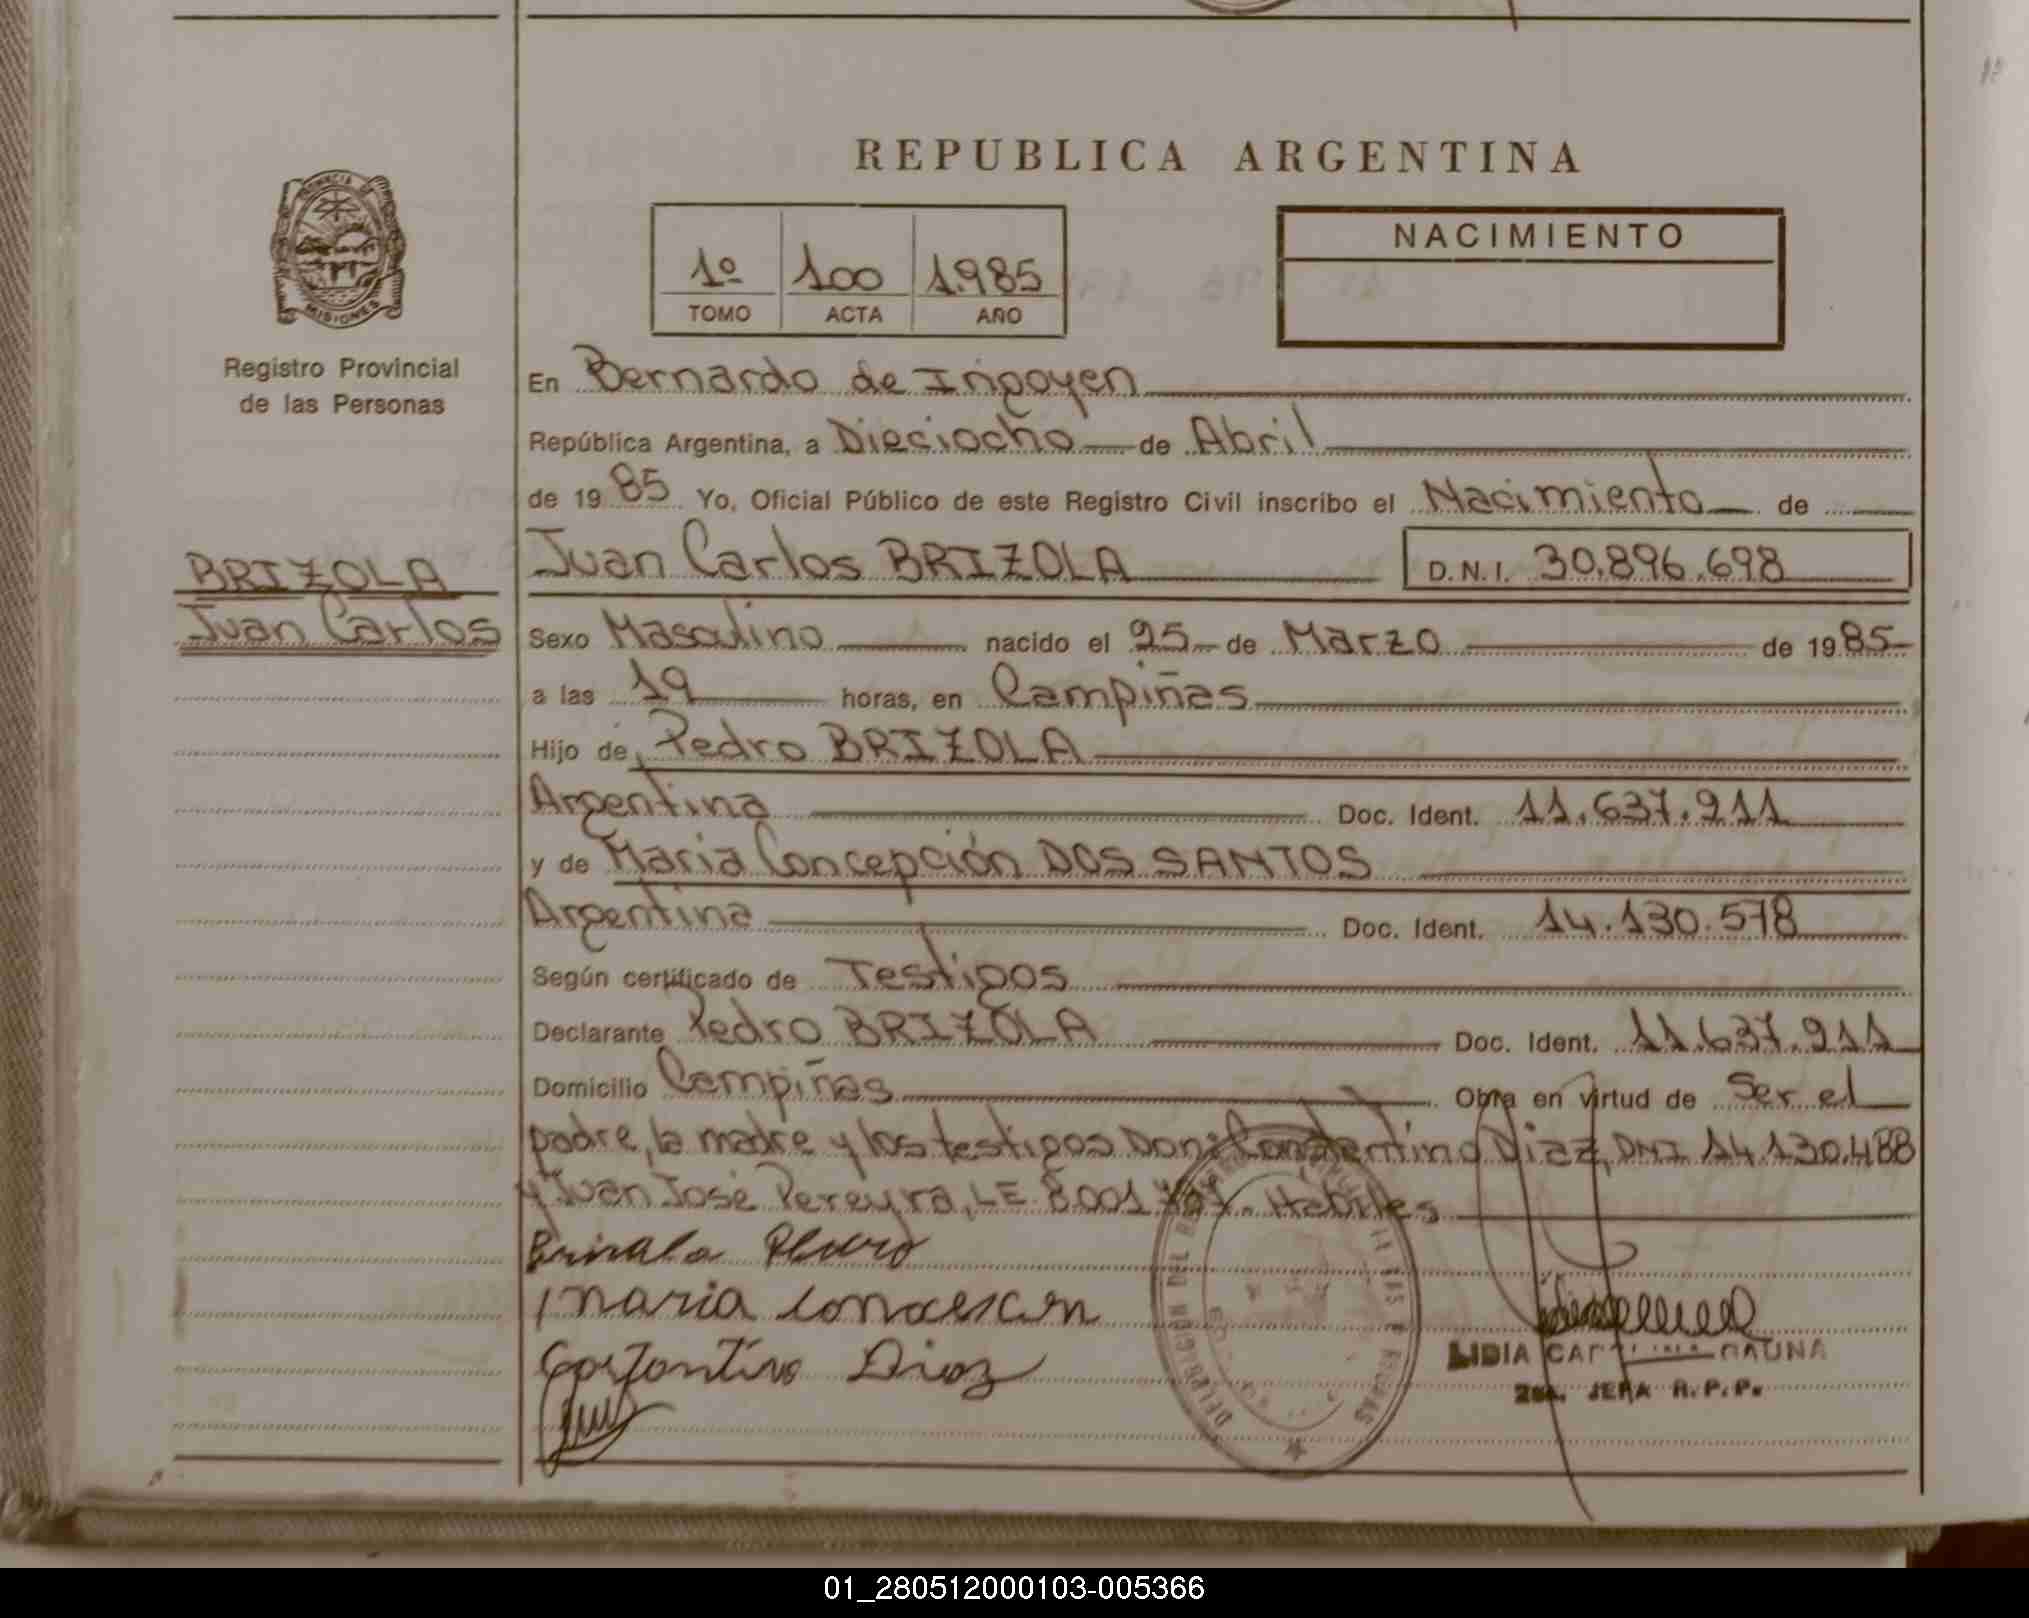 REPUBLICA ARGENTINA
PROVINCIA DE
MISIONES
Registro Provincial
de las Personas
1º 100 1.985
TOMO ACTA AÑO
NACIMIENTO
En Bernardo de Irigoyen
República Argentina, a Dieciocho de Abril
de 19 85 Yo, Oficial Público de este Registro Civil inscribo el Nacimiento de
BRIZOLA
Juan Carlos
Juan Carlos BRIZOLA D.N.I. 30.896.698
Sexo Masculino nacido el 25 de Marzo de 19 85
a las 19 horas, en Campiñas
Hijo de Pedro BRIZOLA
Argentina Doc. Ident. 11.637.911
y de Maria Concepción DOS SANTOS
Argentina Doc. Ident. 14.130.578
Según certificado de Testigos
Declarante Pedro BRIZOLA Doc. Ident. 11.637.911
Domicilio Campiñas Obra en virtud de Ser el
padre, la madre y los testigos Don: Constantino Diaz, DNI 14.130.488
y Juan José Pereyra, LE. 8.001.767. Habiles
Brizola Pedro
Maria
Diaz
LIDIA GAUNA
2da. JEFA R.P.P.
01_280512000103-005366